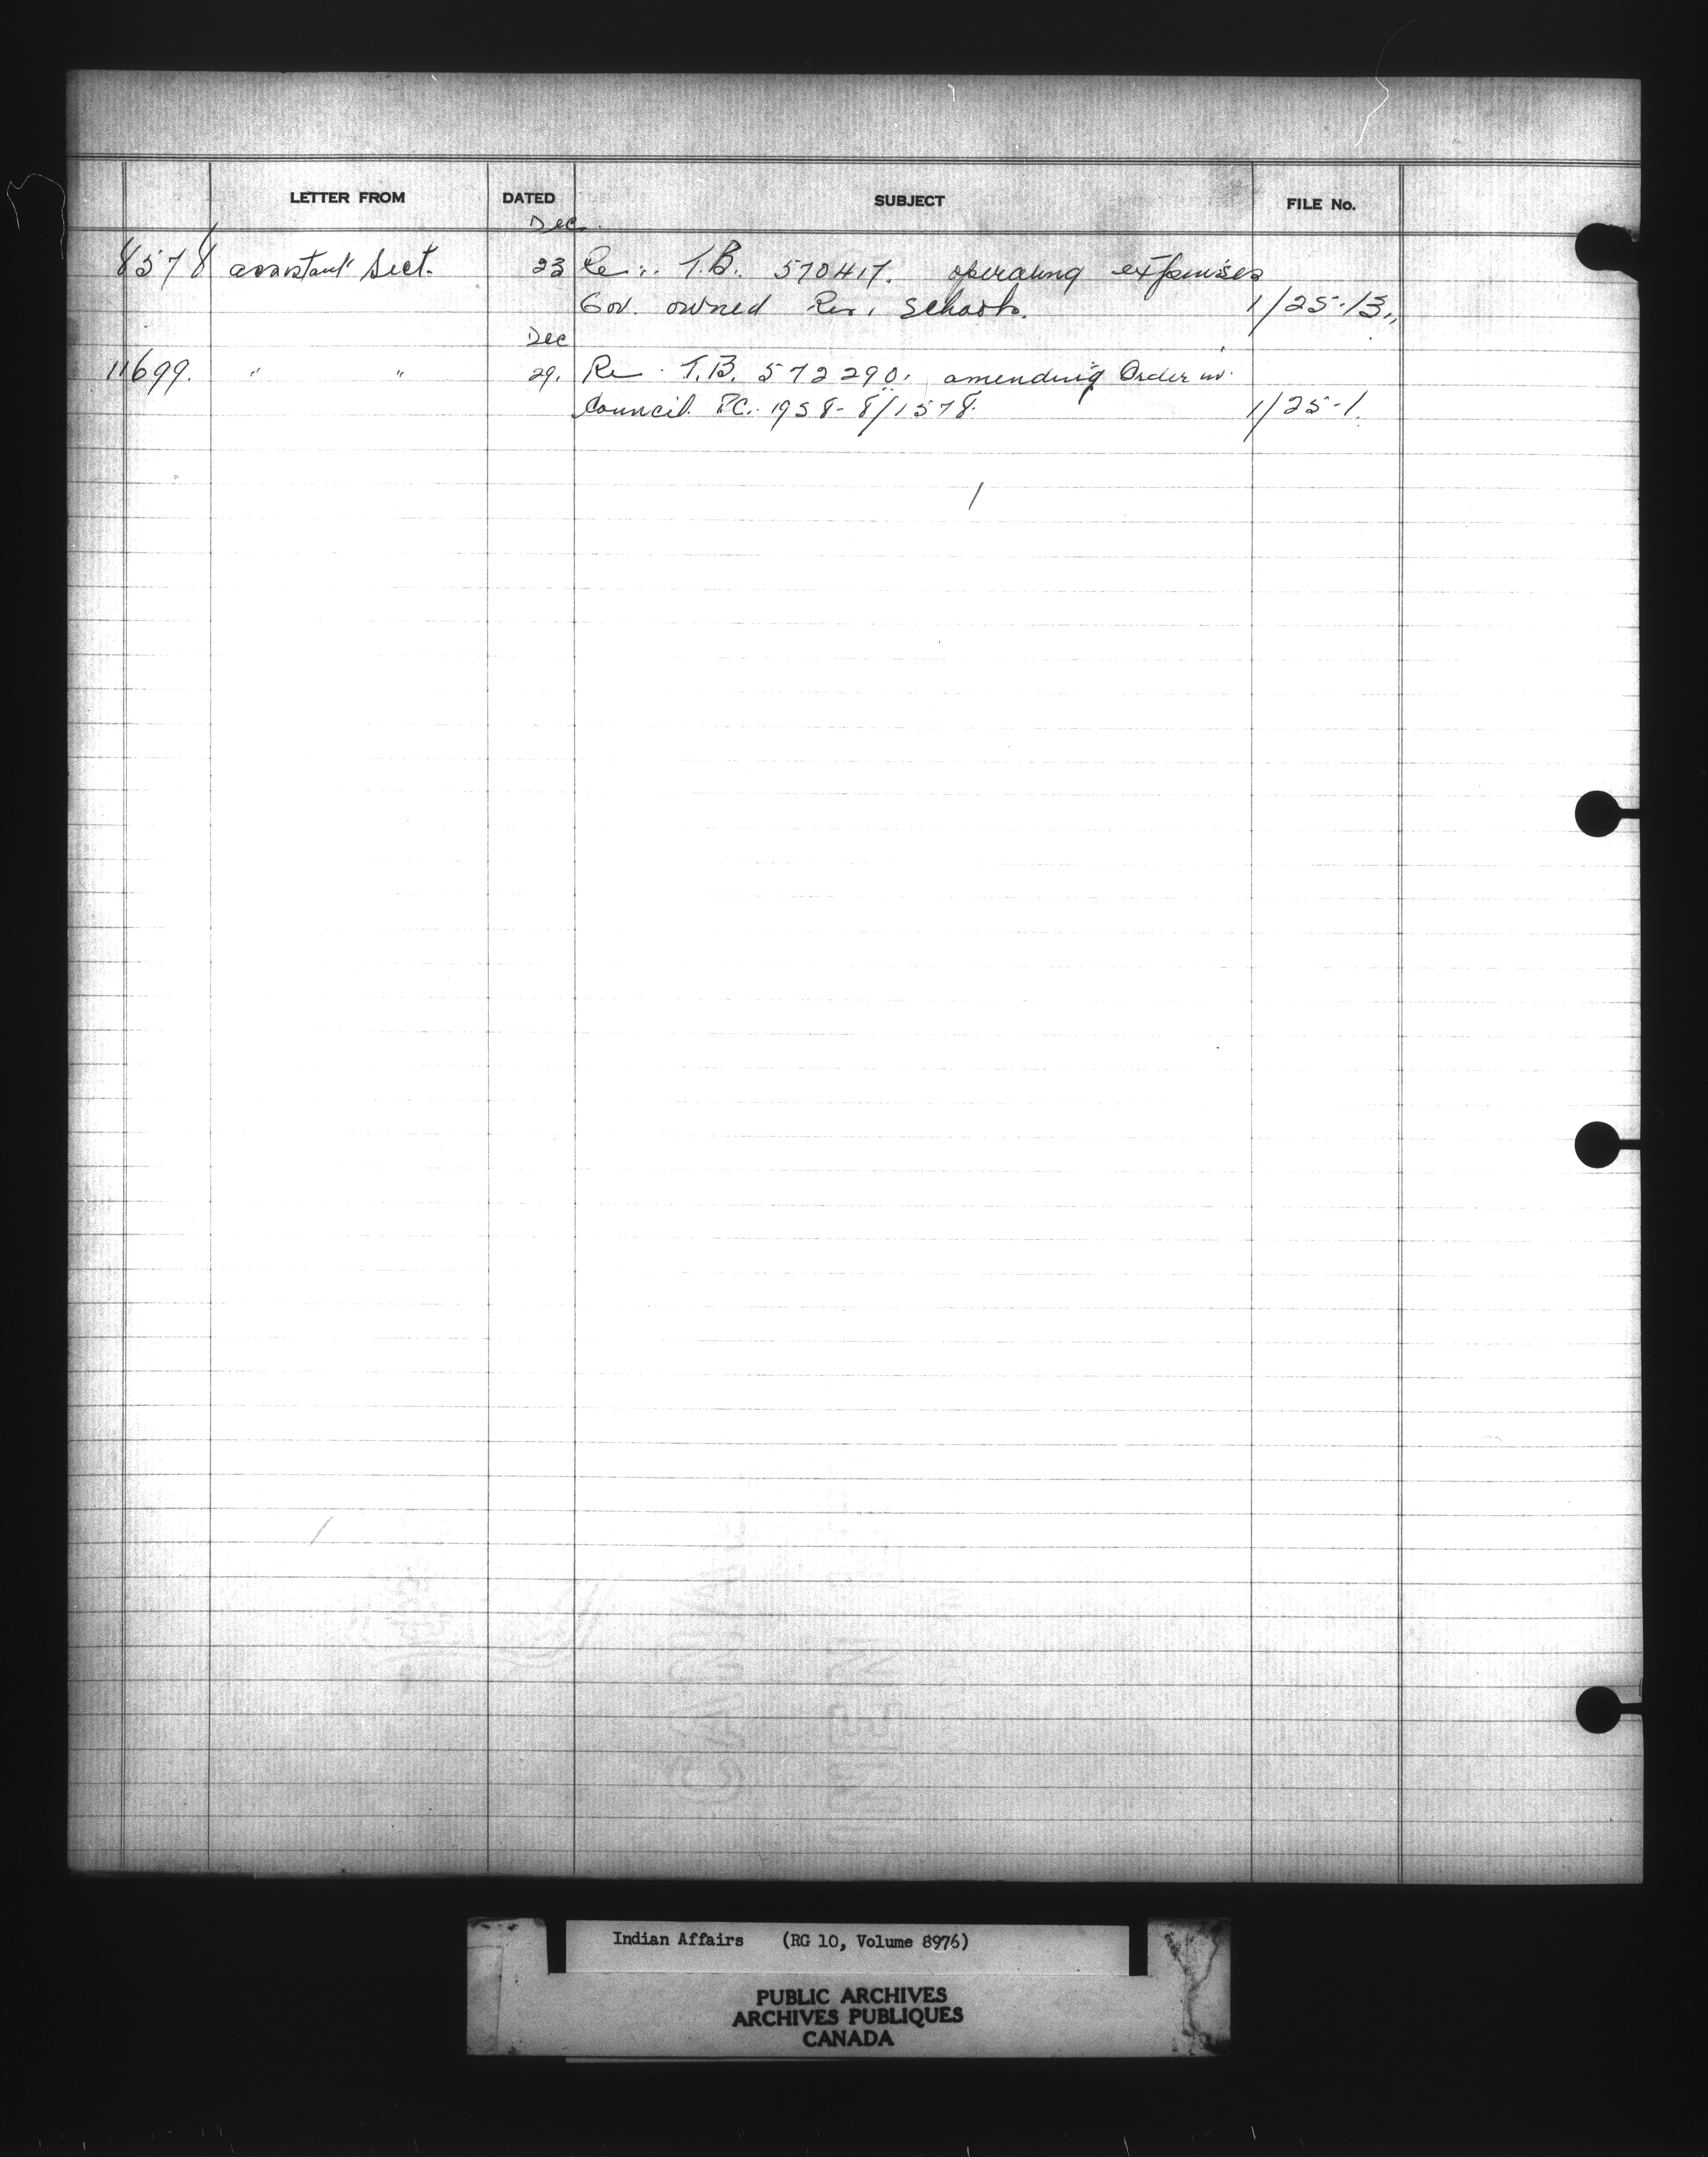 LETTER FROM DATED SUBJECT FILE No.
Dec.
8578 assistant Sect. 23 Re: T.B. 570417. operating expenses
Gov. owned Res. Schools. 1/25-13.
Dec
11699. " " 29. Re T.B. 572290. amending Order in
Council P.C. 1958-8/1578. 1/25-1.
Indian Affairs (RG 10, Volume 8976)
PUBLIC ARCHIVES
ARCHIVES PUBLIQUES
CANADA